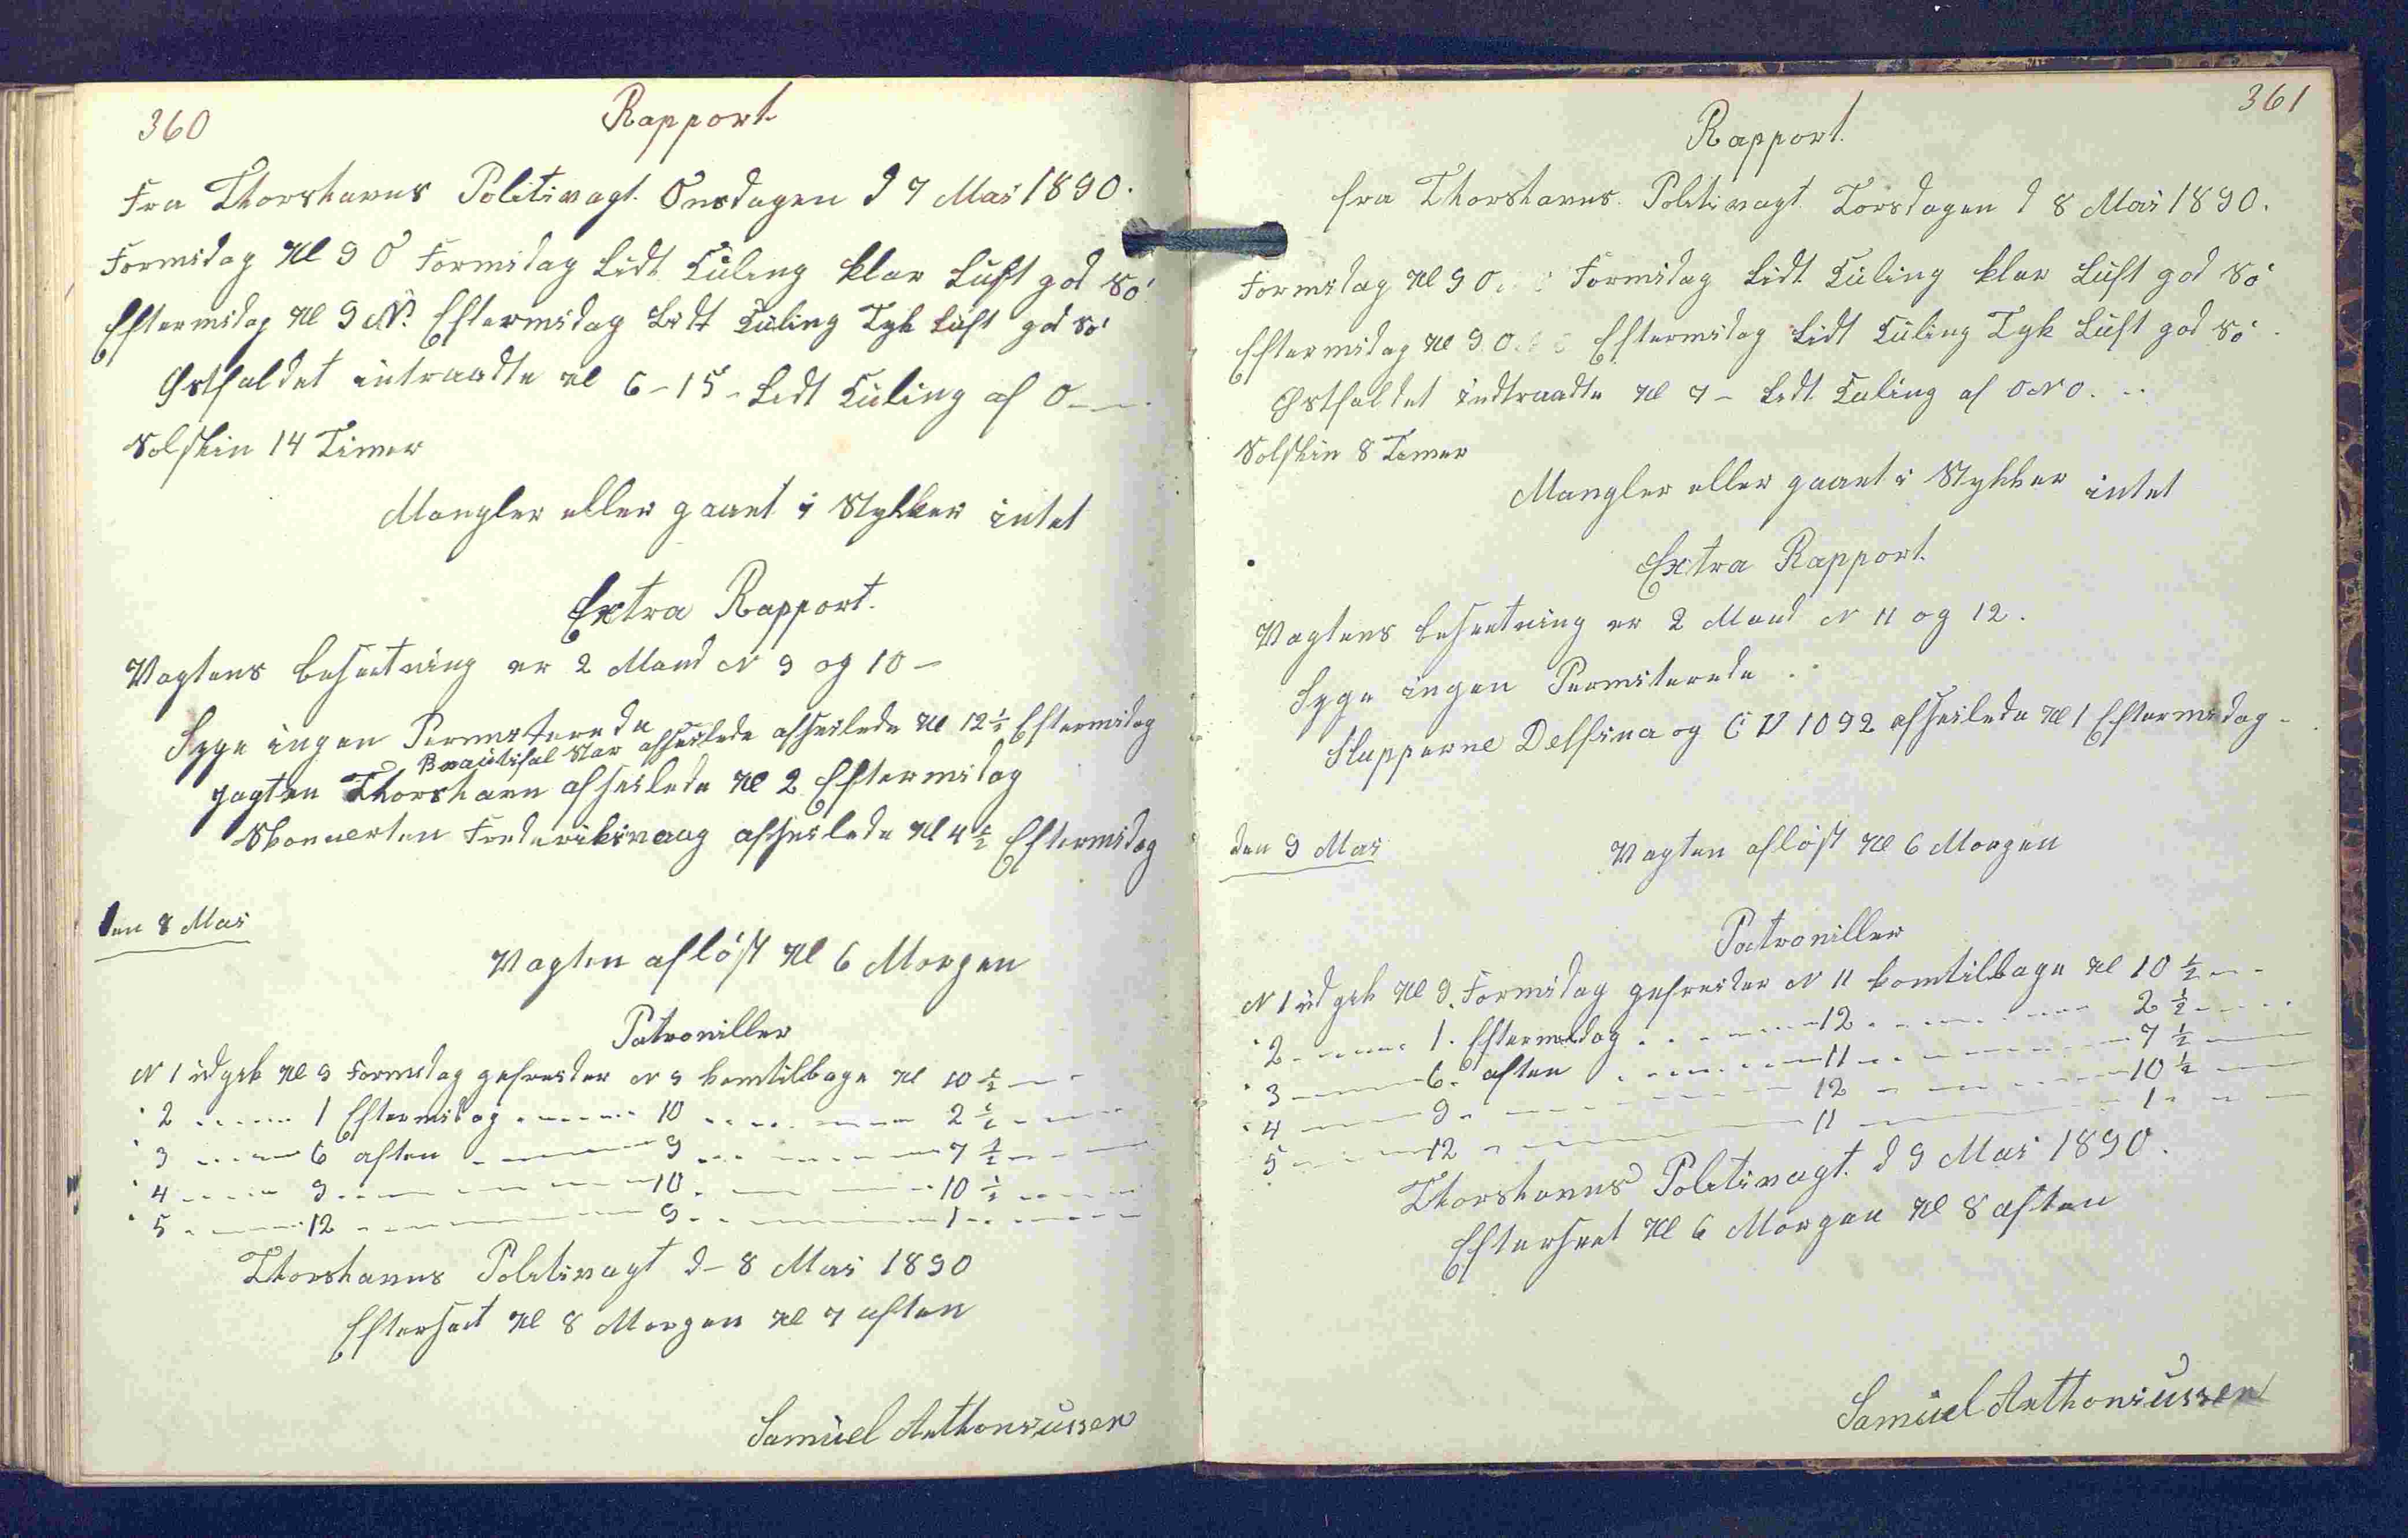 360
Rapport
Fra Thorshavns Politivagt. Onsdagen d 7 Mai 1890.
Formidag Kl 9 O Formidag Lidt Kuling klar Luft god Sö
Eftermidag Kl 9 N. Eftermidag Lidt Kuling Tyk Luft god Sö
Østfaldet intraadte Kl 6-15- Lidt Kuling af O-
Solskin 14 Timer
Mangler eller gaaet i Stykker intet
Extra Rapport.
Vagtens besætning er 2 Mand N 9 og 10 -
Syge ingen Permiterede
Beautiful Star afseilede afseilede Kl 12 1/2 Eftermidag
Jagten Thorshavn afseilede Kl 2 Eftermidag
Skonnerten Frederiksvaag afseilede Kl 4 1/2 Eftermidag
den 8 Mai
Vagten aflöst Kl 6 Morgen
Patroniller
N 1 udgik Kl 9 Formidag gefreider N 9 komtilbage Kl 10 1/2
" 2 1 Eftermidag 10 2 1/2
" 3 6 aften 9 7 1/2
" 4 9 10 10 1/2
" 5 12 9 1
Thorshavns Politivagt d- 8 Mai 1890
Efterseet Kl 8 Morgen Kl 7 aften
Samuel Anthoniussen
361
Rapport.
fra Thorshavns Politivagt Torsdagen d 8 Mai 1890.
Formidag Kl 9 O Formidag Lidt Kuling klar Luft god Sö
Eftermidag Kl 9 O Eftermidag Lidt Kuling Tyk Luft god Sö
Østfaldet indtraadte Kl 7 - Lidt Kuling af ONO.
Solskin 8 Timer
Mangler eller gaaet i Stykker intet
Extra Rapport.
Vagtens besætning er 2 Mand N 11 og 12.
Syge ingen Permiterede.
Slupperne Delfina og C V 1092 afseilede Kl 1 Eftermidag-
den 9 Mai
Vagten aflöst Kl 6 Morgen
Patroniller
N 1 udgik Kl 9. Formidag gefreider N 11 komtilbage Kl 10 1/2
" 2 1. Eftermidag 12 2 1/2
" 3 6. aften 11 7 1/2
" 4 9 12 10 1/2
5 12 11 1
Thorshavns Politivagt. d 9 Mai 1890.
Efterseet Kl 6 Morgen Kl 8 aften
Samuel Anthoniussen